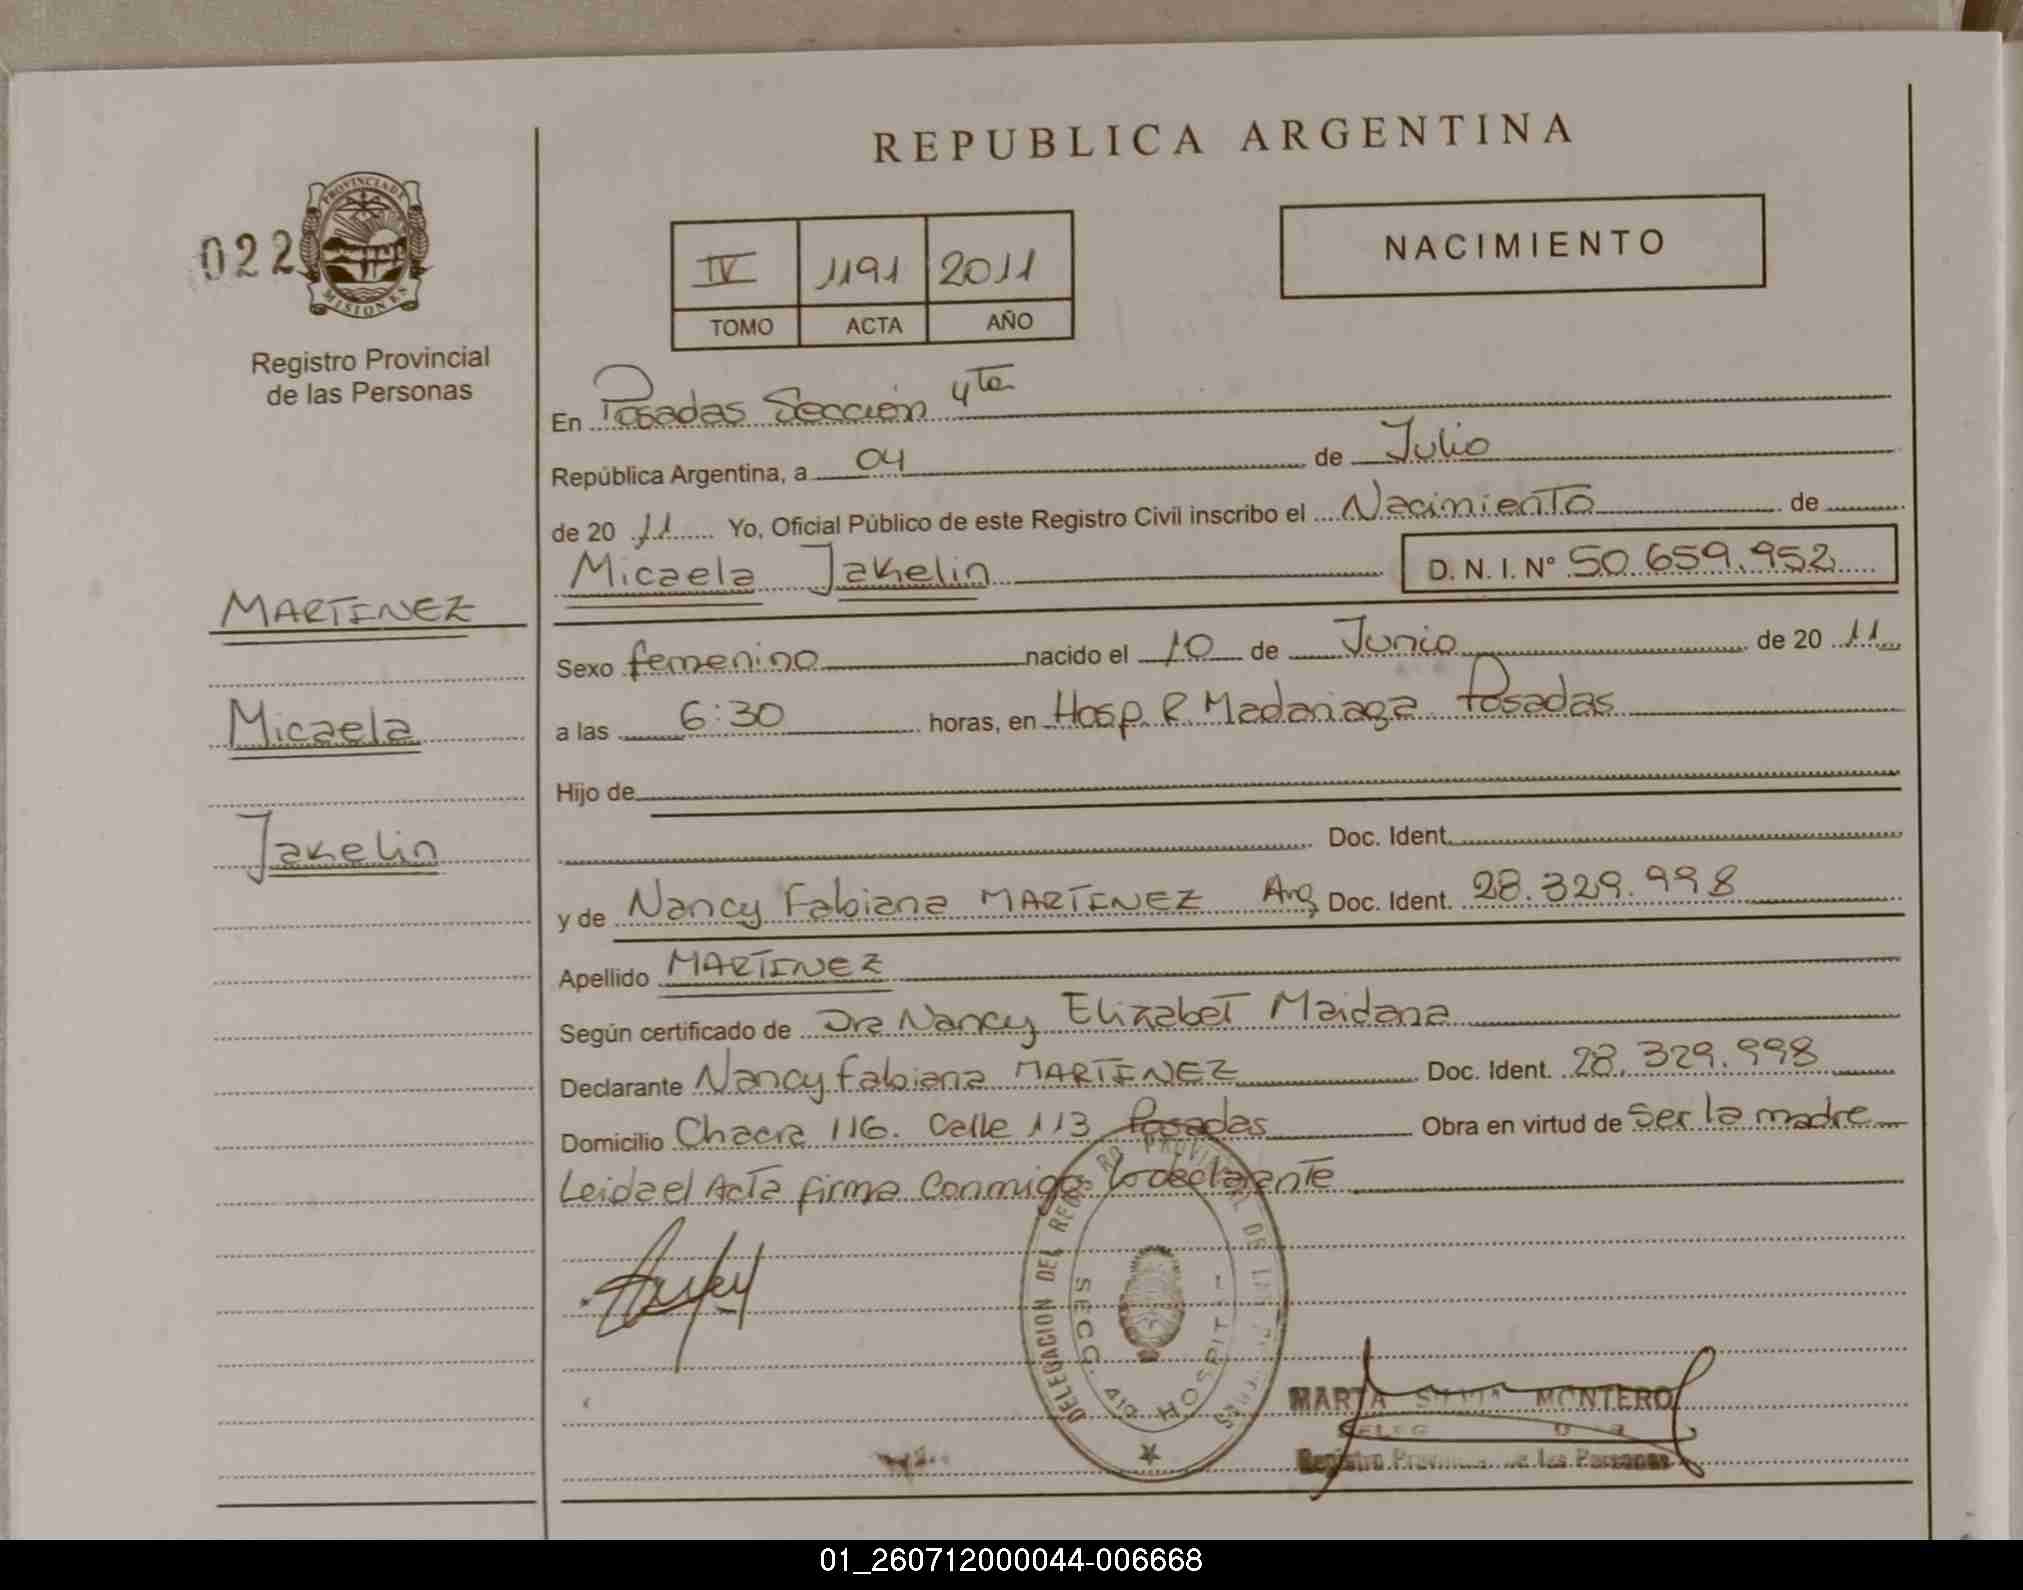 REPUBLICA ARGENTINA
022
PROVINCIA DE
MISIONES
Registro Provincial
de las Personas
IV 1191 2011
TOMO ACTA AÑO
NACIMIENTO
En Posadas Sección 4ta
República Argentina, a 04 de Julio
de 20 11 Yo, Oficial Público de este Registro Civil inscribo el Nacimiento de
Micaela Jakelin D. N. I. Nº 50.659.952
MARTINEZ
Micaela
Jakelin
Sexo femenino nacido el 10 de Junio de 20 11
a las 6:30 horas, en Hosp R Madariaga Posadas
Hijo de
Doc. Ident.
y de Nancy Fabiana MARTINEZ Arg Doc. Ident. 28.329.998
Apellido MARTINEZ
Según certificado de Dra Nancy Elizabet Maidana
Declarante Nancy Fabiana MARTINEZ Doc. Ident. 28.329.998
Domicilio Chacra 116. Calle 113 Posadas Obra en virtud de ser la madre
Leida el Acta firma conmigo la declarante
DELEGACION DEL REGISTRO PROVINCIAL DE LAS PERSONAS
SECC. 4ta HOSPIT
MARTA SILVIA MONTERO
Registro Provincial de las Personas
01_260712000044-006668